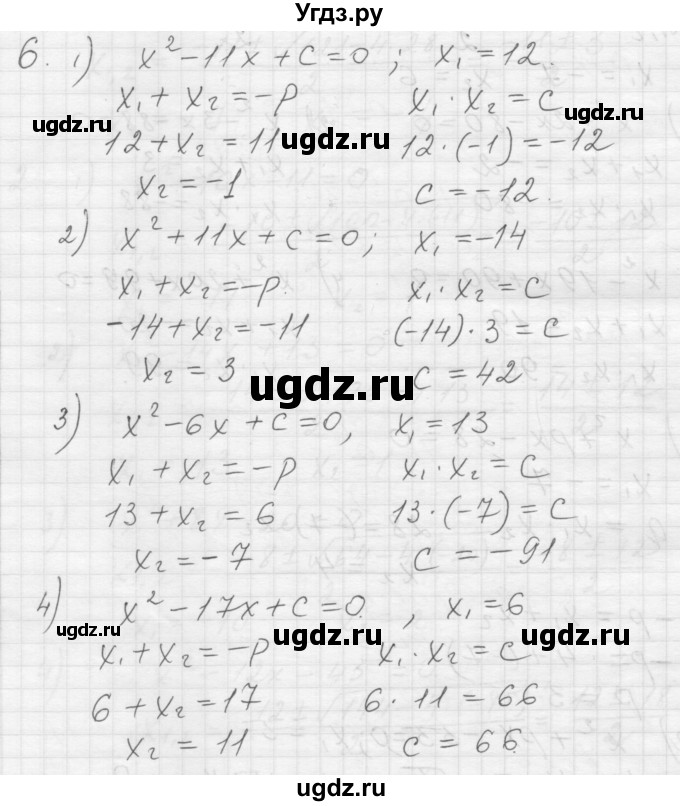 Угдз.ру
6. 1) x² - 11x + c = 0 ; x₁ = 12.
x₁ + x₂ = -p x₁ · x₂ = c
ugdz.ru ugdz.ru ugdz.ru
12 + x₂ = 11 12 · (-1) = -12
x₂ = -1 c = -12.
2) x² + 11x + c = 0; x₁ = -14
x₁ + x₂ = -p. x₁ · x₂ = c
-14 + x₂ = -11 (-14) · 3 = c
x₂ = 3 c = 42
ugdz.ru
3) x² - 6x + c = 0, x₁ = 13
x₁ + x₂ = -p x₁ · x₂ = c
13 + x₂ = 6 13 · (-7) = c
x₂ = -7 c = -91
4) x² - 17x + c = 0 , x₁ = 6
ugdz.ru ugdz.ru ugdz.ru
x₁ + x₂ = -p x₁ · x₂ = c
6 + x₂ = 17 6 · 11 = 66
x₂ = 11 c = 66
ugdz.ru